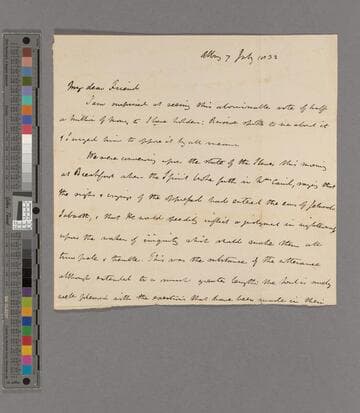 Albny 7 July 1833
My dear Friend
I am surprised at seeing this abominable vote of half
a million of money to Slave holders: spoke to me about it
& I urged him to oppose it by all means.
We were conversing upon the state of the Slaves this morning
at Breakfast when the Spirit broke forth in Mrs says that
the sighs & cryings of the oppressed had entered the ears of Jehovah
Sabaoth, & that He would speedily inflict a judgment in righteousness
upon the makers of iniquity which would make them all
turn pale & tremble. This was the substance of the utterance
although extended to a much greater length; the Lord is surely
well pleased with the exertions that have been made in their